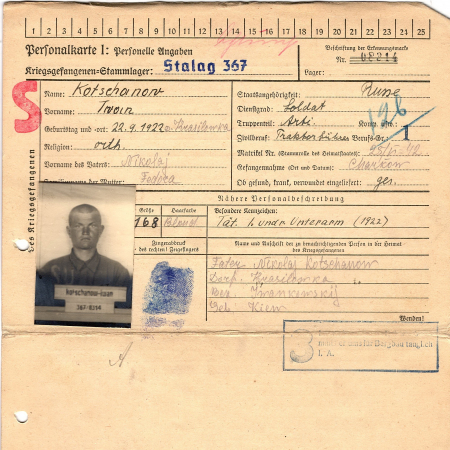 1 2 3 4 5 6 7 8 9 10 11 12 13 14 15 16 17 18 19 20 21 22 23 24 25
Personalkarte I: Personelle Angaben
Beschriftung der Erkennungsmarke
Kriegsgefangenen-Stammlager: Stalag 367
Nr.
Lager:
S
Des Kriegsgefangenen
Name: Kotschanow
Vorname: Iwan
Geburtstag und -ort: 22.9.1922 Krasilowka
Religion: orth.
Vorname des Vaters: Nikolaj
Familienname der Mutter: Fedora
Staatsangehörigkeit: Russe
Dienstgrad: Soldat
Truppenteil: Arti Kom. usw.:
Zivilberuf: Berufs-Gr.: 1
126
Matrikel Nr. (Stammrolle des Heimatstaates):
Gefangennahme (Ort und Datum): Charkow
Ob gesund, krank, verwundet eingeliefert: ges.
Nähere Personalbeschreibung
Größe Haarfarbe Besondere Kennzeichen:
168 blond Tät. l. und r. Unterarm (1922)
Fingerabdruck
des rechten Zeigefingers
Name und Anschrift der zu benachrichtigenden Person in der Heimat
des Kriegsgefangenen
Vater Nikolaj Kotschanow
Dorf Krasilowka
Bez. Iwankowskij
Geb. Kiew
Kotschanow-Iwan
367-8214
Wenden!
3
I. A.